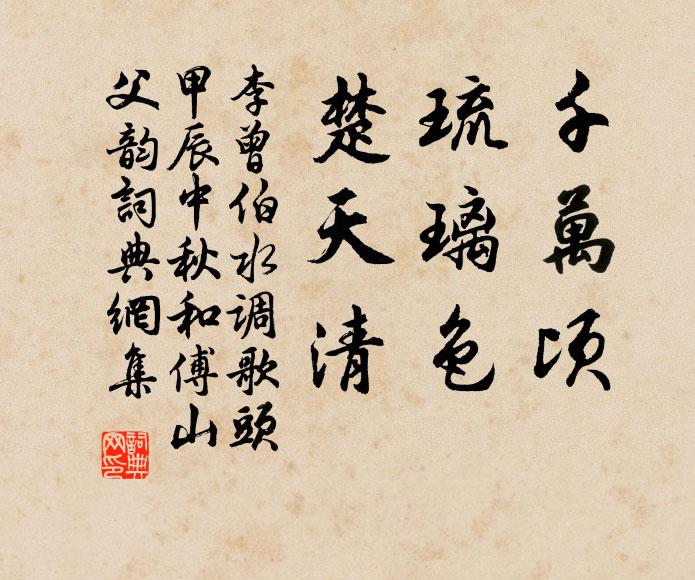 千萬頃
琉璃色
楚天清
李曾伯水调歌頭
甲辰中秋和傅山
父韵詞典網集
詞典
网印